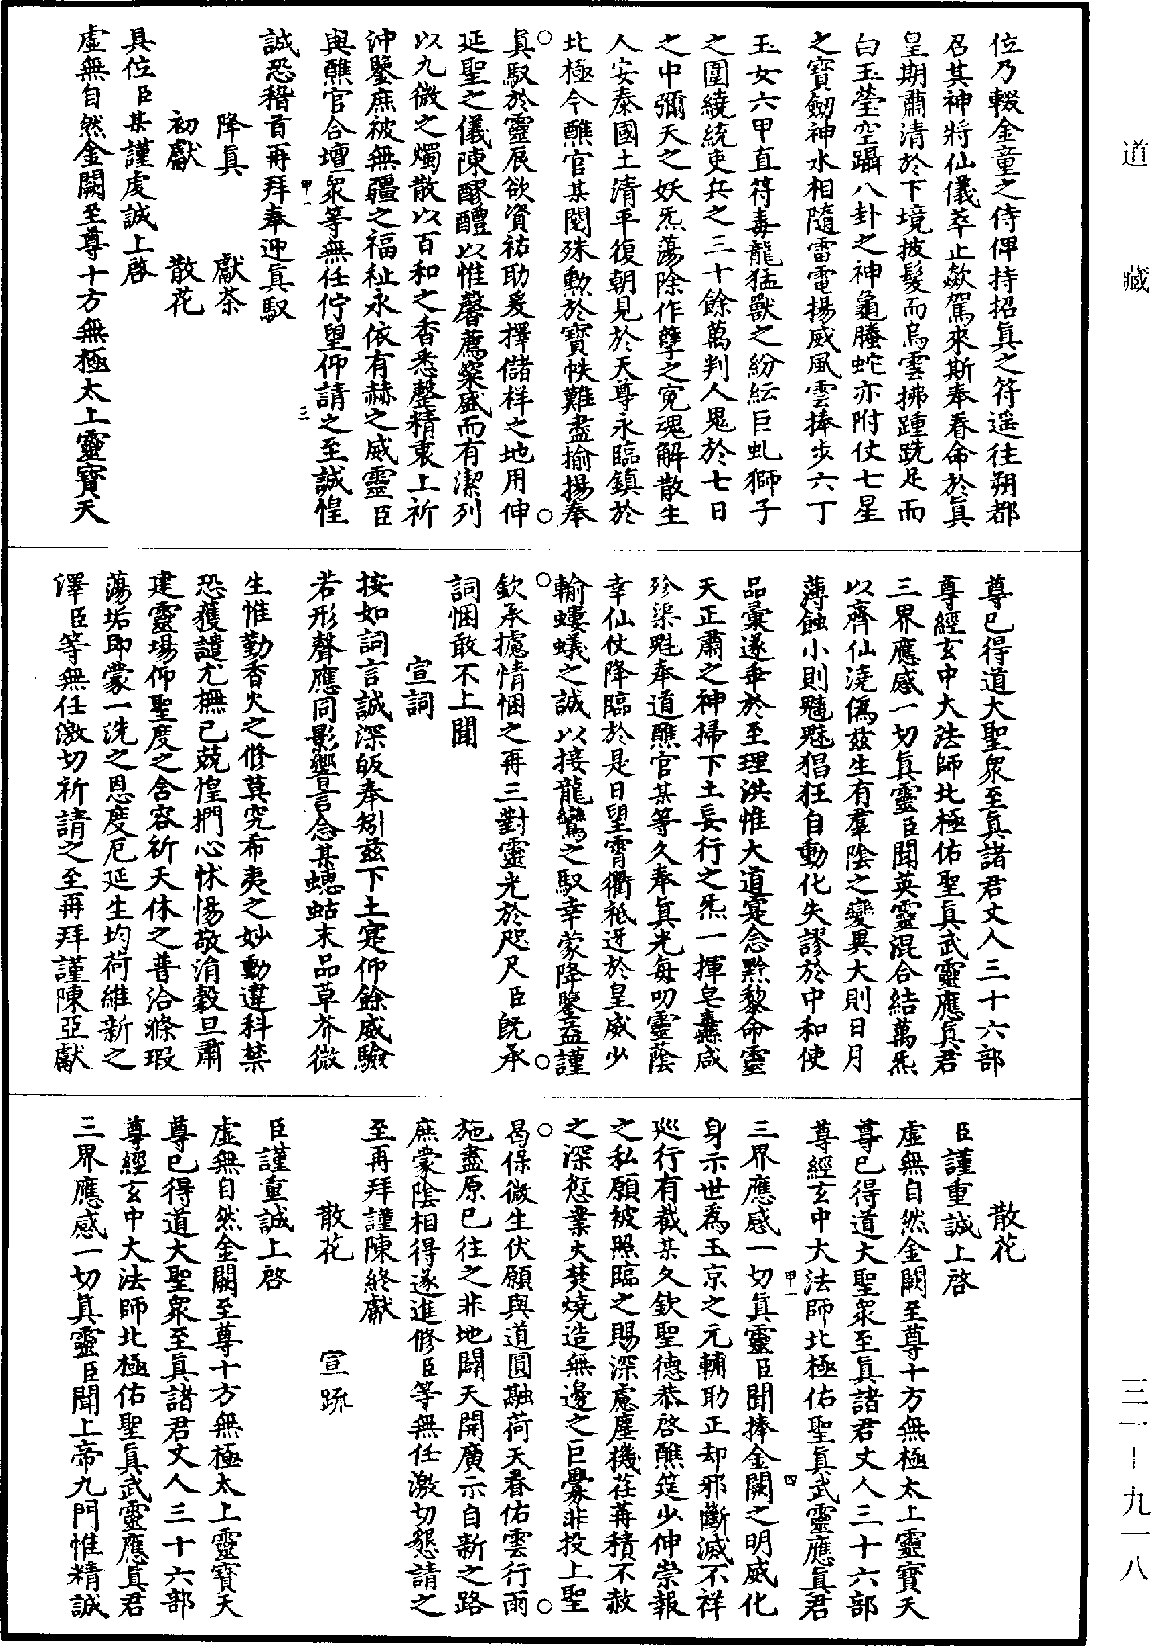 道藏
三一－九一八
位乃輟金童之侍俾持招眞之符遥往朔都
召其神將仙儀萃止歘駕來斯奉眷命於眞
皇期肅清於下境披髮而烏雲拂踵跣足而
白玉瑩空躡八卦之神龜螣蛇亦附仗七星
之寳劒神水相隨雷電揚威風雲捧步六丁
玉女六甲直符毒龍猛獸之紛紜巨虬獅子
之圍繞統吏兵之三十餘萬判人鬼於七日
之中彌天之妖炁蕩除作孽之寃魂解散生
人安泰國土清平復朝見於天尊永臨鎮於
北極今醮官某閱殊勳於寳帙難盡揄揚奉
眞馭於靈辰欲資祐助爰擇儲祥之地用伸
延聖之儀陳醪醴以惟馨薦粢盛而有潔列
以九微之燭散以百和之香悉整精衷上祈
沖鑒庶被無疆之福祉永依有赫之威靈臣
與醮官合壇衆等無任佇望仰請之至誠惶
誠恐稽首再拜奉迎眞馭
降眞　獻茶
初獻　散花
具位臣某謹虔誠上啓
虛無自然金闕至尊十方無極太上靈寳天
尊巳得道大聖衆至眞諸君丈人三十六部
尊經玄中大法師北極佑聖眞武靈應眞君
三界應感一切眞靈臣聞英靈混合結萬炁
以齊仙澆僞兹生有羣陰之變異大則日月
薄蝕小則魑魅猖狂自動化失謬於中和使
品彙遂乖於至理洪惟大道寔念黔黎命靈
天正肅之神掃下土妄行之炁一揮皂纛咸
殄渠魁奉道醮官某等久奉眞光每叨靈蔭
幸仙仗降臨於是日望霄衢祗迓於皇威少
輸螻蟻之誠以接龍鸞之馭幸蒙降鑒益謹
欽承攄情悃之再三對靈光於咫尺臣旣承
詞悃敢不上聞
宣詞
按如詞言誠深皈奉矧兹下土寔仰餘威驗
若形聲應同影響言念某蟪蛄末品草芥微
生惟勤香火之修莫究希夷之妙動違科禁
恐獲譴尤撫已兢惶捫心怵惕敬涓穀旦肅
建靈場仰聖度之含容祈天休之普洽滌瑕
蕩垢即蒙一洗之恩度厄延生均荷維新之
澤臣等無任激切祈請之至再拜謹陳亞獻
散花
臣謹重誠上啓
虛無自然金闕至尊十方無極太上靈寳天
尊巳得道大聖衆至眞諸君丈人三十六部
尊經玄中大法師北極佑聖眞武靈應眞君
三界應感一切眞靈臣聞捧金闕之明威化
身示世爲玉京之元輔助正却邪斷滅不祥
巡行有截某久欽聖德恭啓醮筵少伸崇報
之私願被照臨之賜深慮塵機荏苒積不赦
之深愆業火焚燒造無邊之巨釁非投上聖
曷保微生伏願與道圓融荷天眷佑雲行雨
施盡原已往之非地闢天開廣示自新之路
庶蒙陰相得遂進修臣等無任激切懇請之
至再拜謹陳終獻
散花　宣疏
臣謹重誠上啓
虛無自然金闕至尊十方無極太上靈寳天
尊巳得道大聖衆至眞諸君丈人三十六部
尊經玄中大法師北極佑聖眞武靈應眞君
三界應感一切眞靈臣聞上帝九門惟精誠
甲一　三
甲一　四